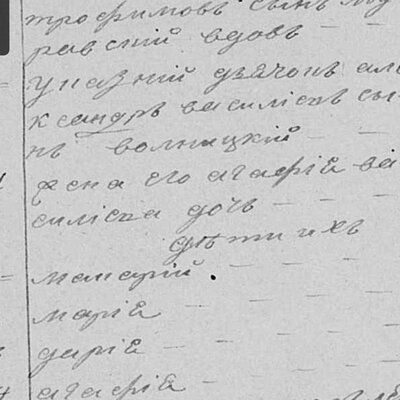 трофимовъ сынъ му
равскій вдовъ
указній дячокъ але
ксандръ василіевъ сы
нъ волницкій
жена его агафіѧ ва
силіева дочь
дѣти ихъ
макарій
маріѧ
даріѧ
агафіѧ